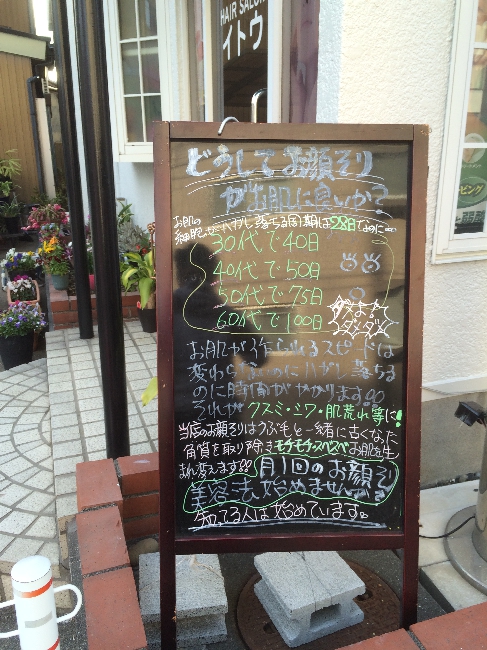 HAIR SALON
イトウ
どうしてお顔そり
がお肌に良いか?
お肌の
細胞が生まれ 落ちる周期は28日なのに…
30代で40日
40代で50日
50代で75日
60代で100日
ダンダン
お肌が作られるスピードは
変わらないのにハガレ落ちる
のに時間がかかります!!
それがクスミ・シワ・肌荒れ等に!
当店のお顔そりはうぶ毛と一緒に古くなった
角質を取り除きモチモチスベスベお肌に生
まれ変えます!!
月1回のお顔そり
美容法始めませんか?
知ってる人は始めています。
ピング